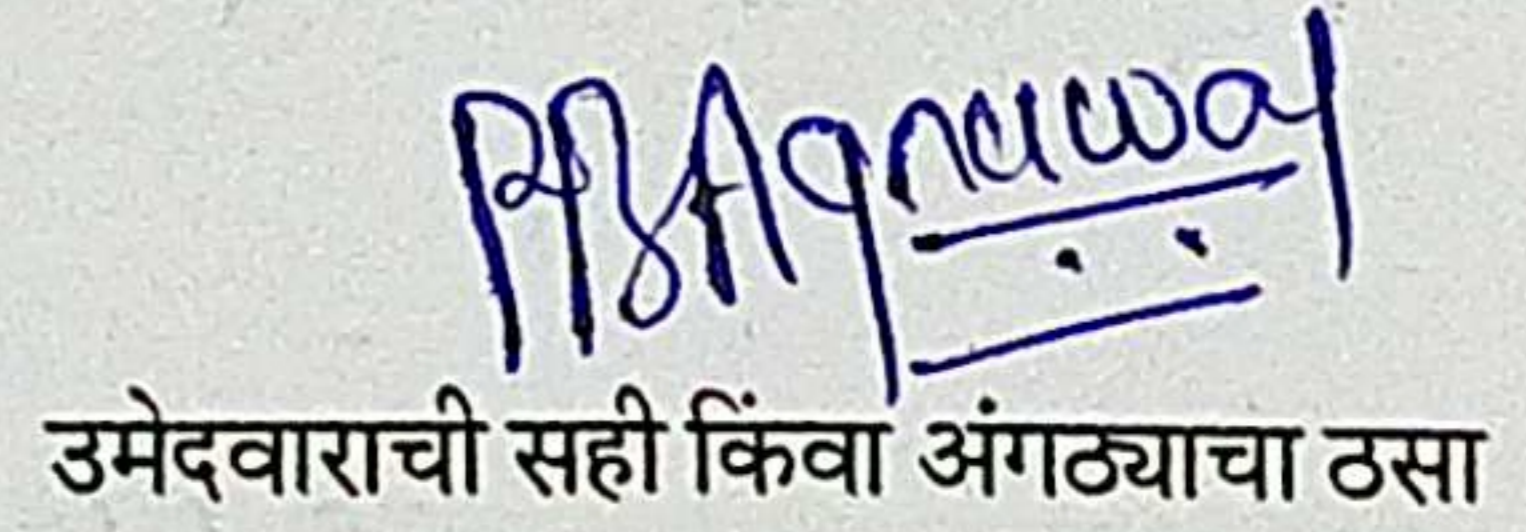 PBAgrawal
उमेदवाराची सही किंवा अंगठ्याचा ठसा